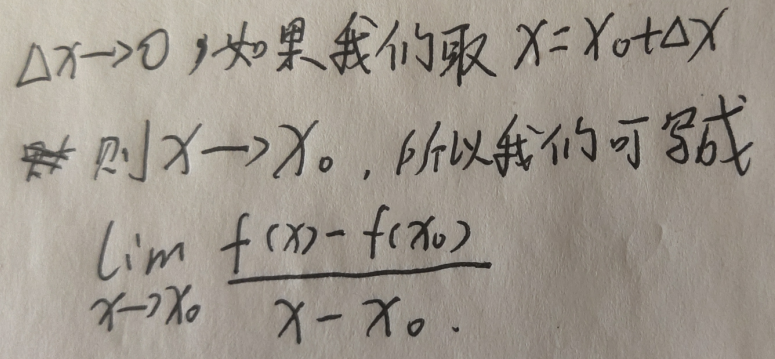 Δx→0,如果我们取 x=x₀+Δx
则 x→x₀, 所以我们可写成
lim f(x)-f(x₀)
x→x₀ x-x₀.